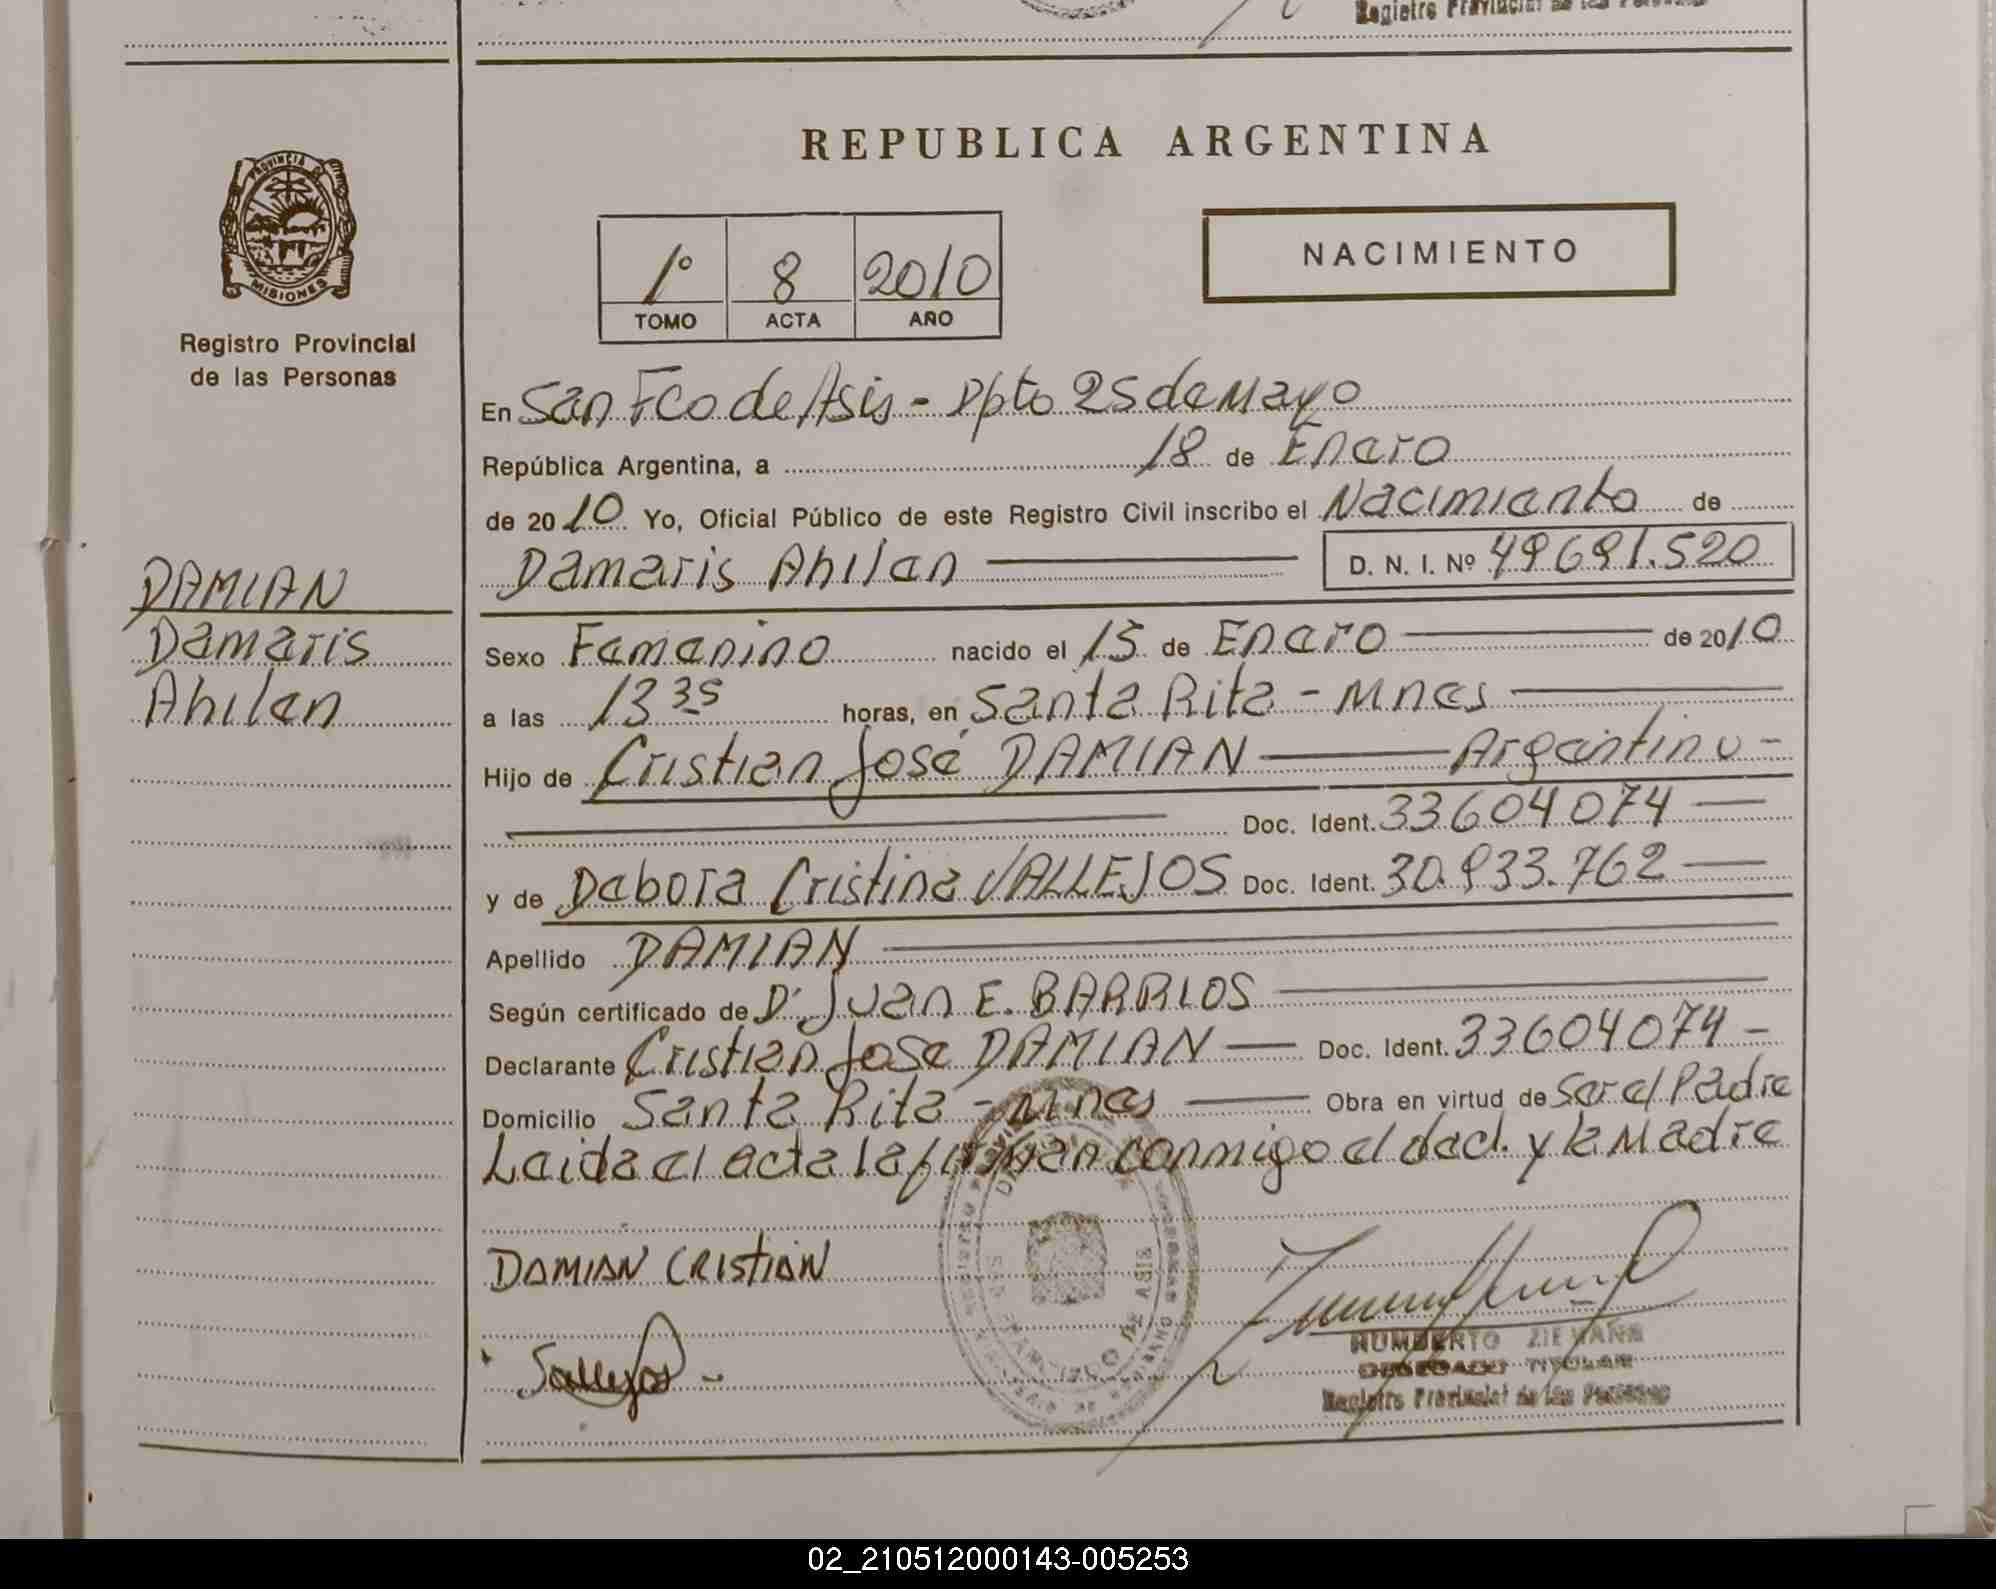 Registro Provincial de las Personas
REPUBLICA ARGENTINA
PROVINCIA DE
MISIONES
Registro Provincial
de las Personas
1º 8 2010
TOMO ACTA AÑO
NACIMIENTO
En San Fco de Asis - Dpto 25 de Mayo
República Argentina, a 18 de Enero
de 2010 Yo, Oficial Público de este Registro Civil inscribo el Nacimiento de
Damaris Ahilen D. N. I. Nº 49691.520
DAMIAN
Damaris
Ahilen
Sexo Femenino nacido el 15 de Enero de 2010
a las 13 35 horas, en Santa Rita - Mnes
Hijo de Cristian José DAMIAN Argentino -
Doc. Ident. 33604074
y de Debora Cristina VALLEJOS Doc. Ident. 30.933.762
Apellido DAMIAN
Según certificado de Dr Juan E. BARRIOS
Declarante Cristian Jose DAMIAN Doc. Ident. 33604074 -
Domicilio Santa Rita - Mnes Obra en virtud de Ser el Padre
Leida el acta la firman conmigo el decl. y la Madre
DAMIAN CRISTIAN
SAN FRANCISCO DE ASIS
HUMBERTO ZIEMANN
DELEGADO TITULAR
Registro Provincial de las Personas
02_210512000143-005253